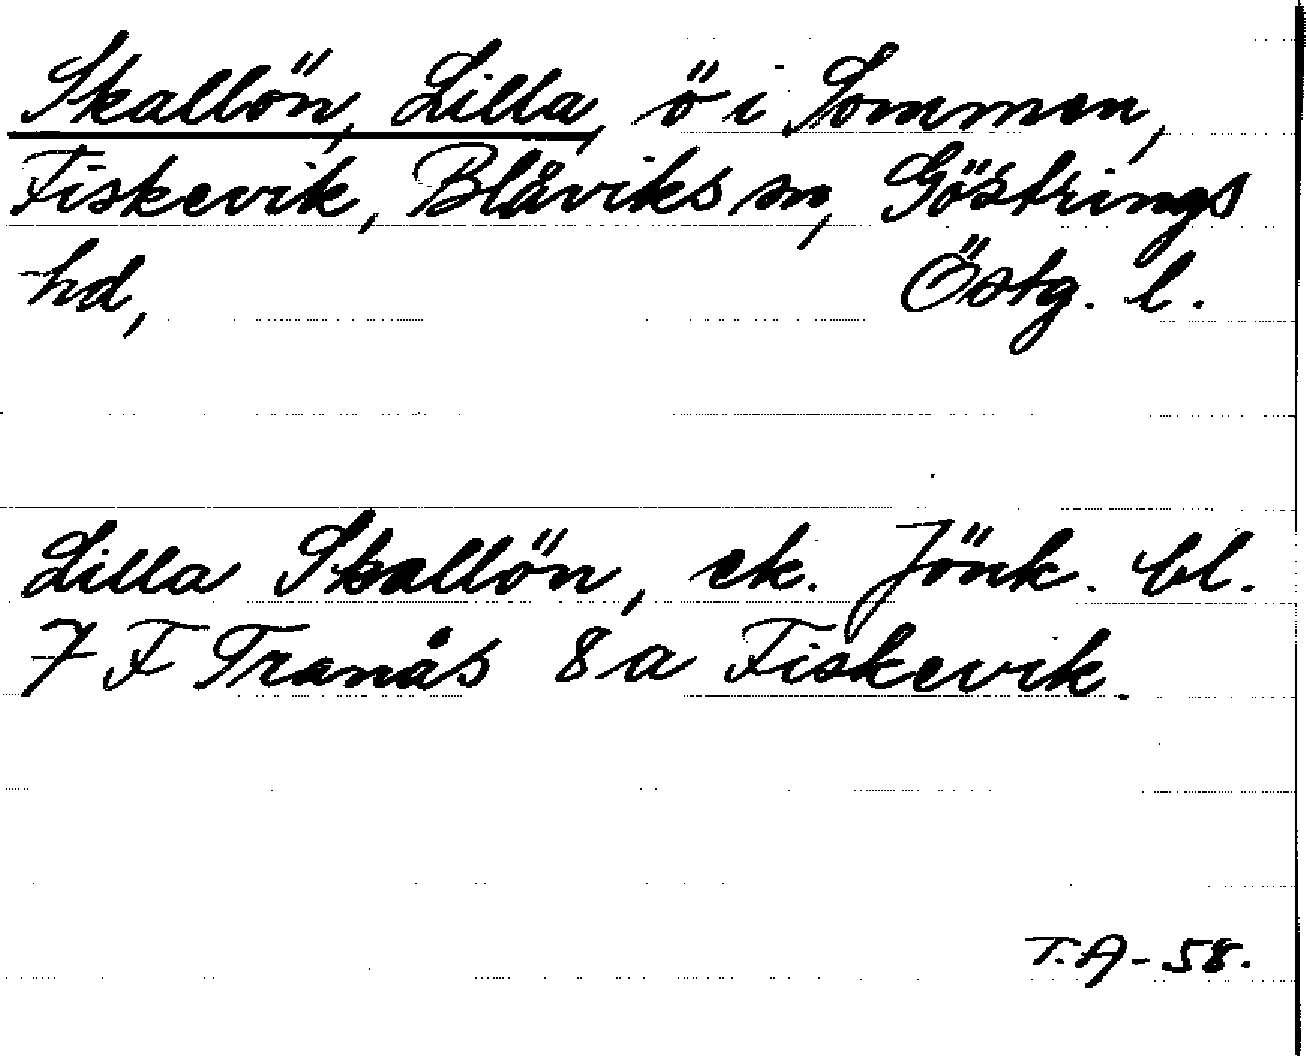 Skallön, Lilla, ö i Sommen,
Fiskevik, Blåviks sn, Göstrings
hd, Östg. l.
Lilla Skallön, ek. Jönk. bl.
7 F Tranås 8 a Fiskevik.
T.A - 58.